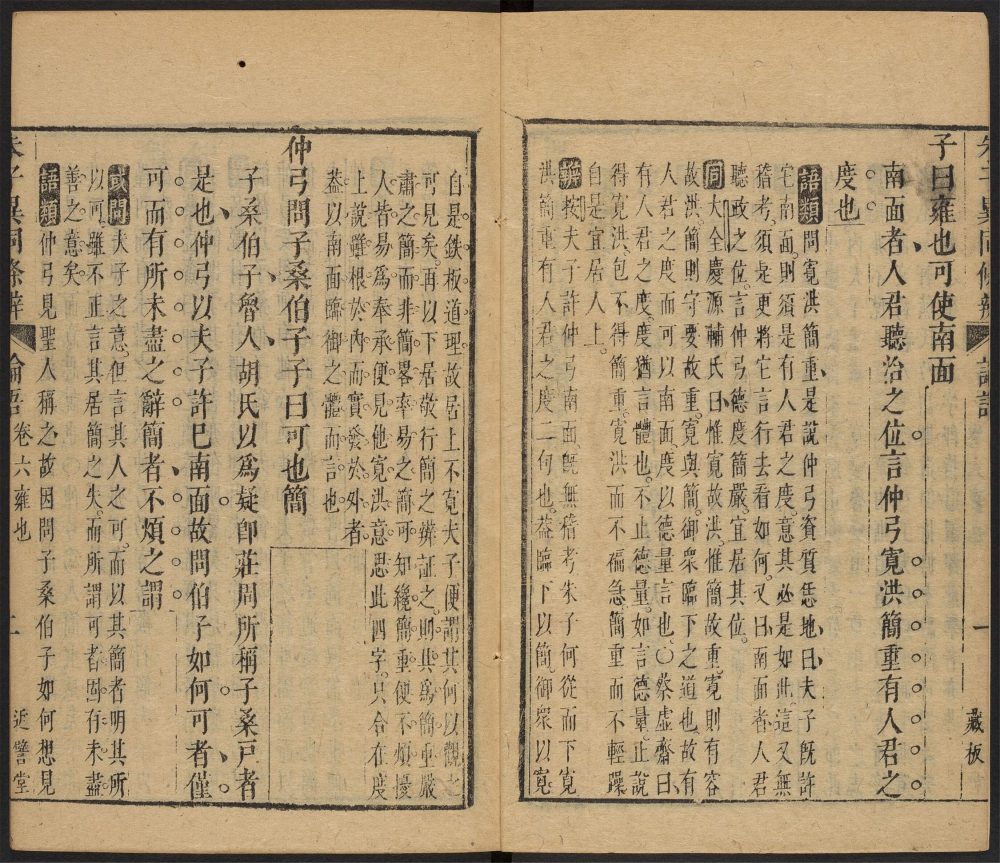 朱子異同條辨
論語
一
藏板
子曰雍也可使南面
南面者人君聽治之位言仲弓寬洪簡重有人君之
度也
語類問寬洪簡重是說仲弓資質恁地曰夫子旣許
宅南面則須是有人君之度意其必是如此這又無
稽考須是更將它言行去看如何又曰南面者人君
聽政之位言仲弓德度簡嚴宜居其位
同大全慶源輔氏曰惟寬故洪惟簡故重寬則有容
故洪簡則守要故重寬與簡御衆臨下之道也故有
人君之度而可以南面度以德量言也〇蔡虛齋曰
有人君之度度猶言體也不止德量如言德量止說
得寬洪包不得簡重寬洪而不褊急簡重而不輕躁
自是宜居人上
辨按夫子許仲弓南面旣無稽考朱子何從而下寬
洪簡重有人君之度二句也蓋臨下以簡御衆以寬
自是鉄板道理故居上不寬夫子便謂其何以觀之
可見矣再以下居敬行簡之辨証之則其爲簡重嚴
肅之簡而非簡畧率易之簡可知纔簡重便不煩擾
人皆易爲奉承便見他寬洪意思此四字只合在度
上說雖根於內而實發於外者
蓋以南面臨御之體而言也
仲弓問子桑伯子子曰可也簡
子桑伯子魯人胡氏以爲疑卽莊周所稱子桑戶者
是也仲弓以夫子許巳南面故問伯子如何可者僅
可而有所未盡之辭簡者不煩之謂
或問夫子之意但言其人之可而以其簡者明其所
以可雖不正言其居簡之失而所謂可者固有未盡
善之意矣
語類仲弓見聖人稱之故因問子桑伯子如何想見
朱子異同條辨
論語卷六雍也
二
近譬堂